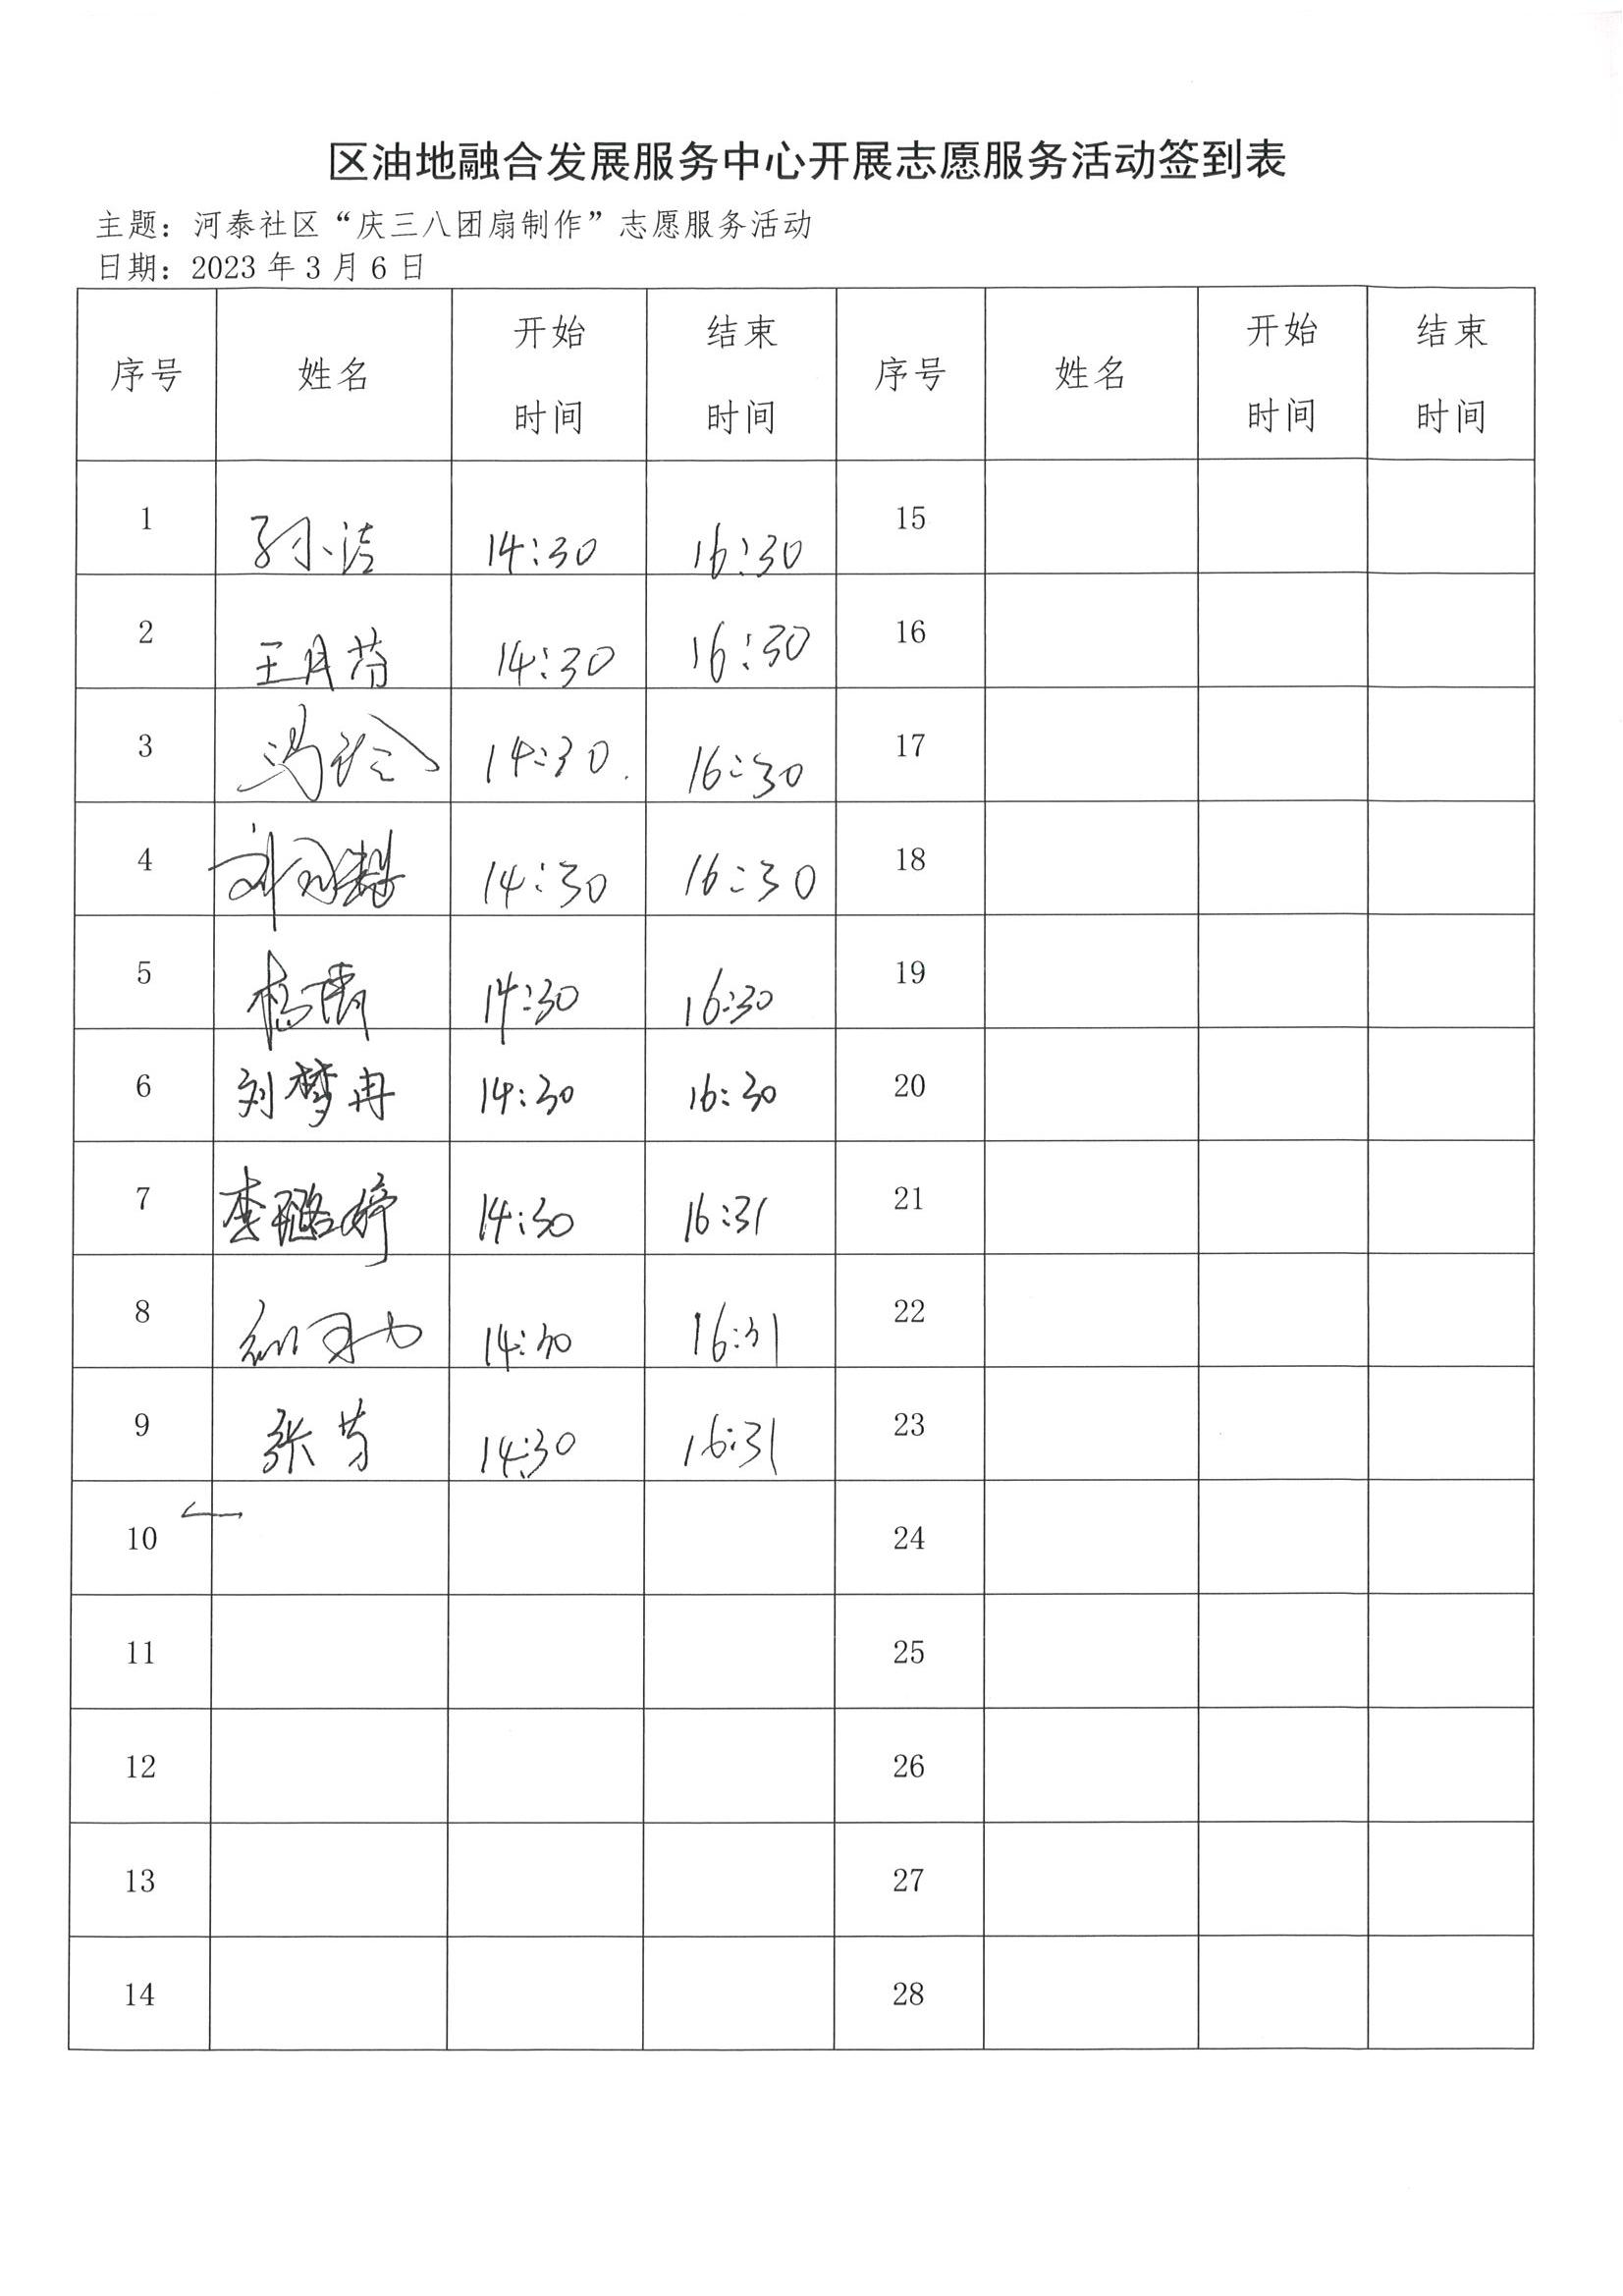 区油地融合发展服务中心开展志愿服务活动签到表
主题：河泰社区“庆三八团扇制作”志愿服务活动
日期：2023 年 3 月 6 日
序号 姓名 开始时间 结束时间 序号 姓名 开始时间 结束时间
1 孙洁 14:30 16:30 15
2 王月芬 14:30 16:30 16
3 冯 14:30 16:30 17
4 刘 14:30 16:30 18
5 杨倩 14:30 16:30 19
6 刘梦冉 14:30 16:30 20
7 李璐婷 14:30 16:31 21
8 14:30 16:31 22
9 张芳 14:30 16:31 23
10 24
11 25
12 26
13 27
14 28